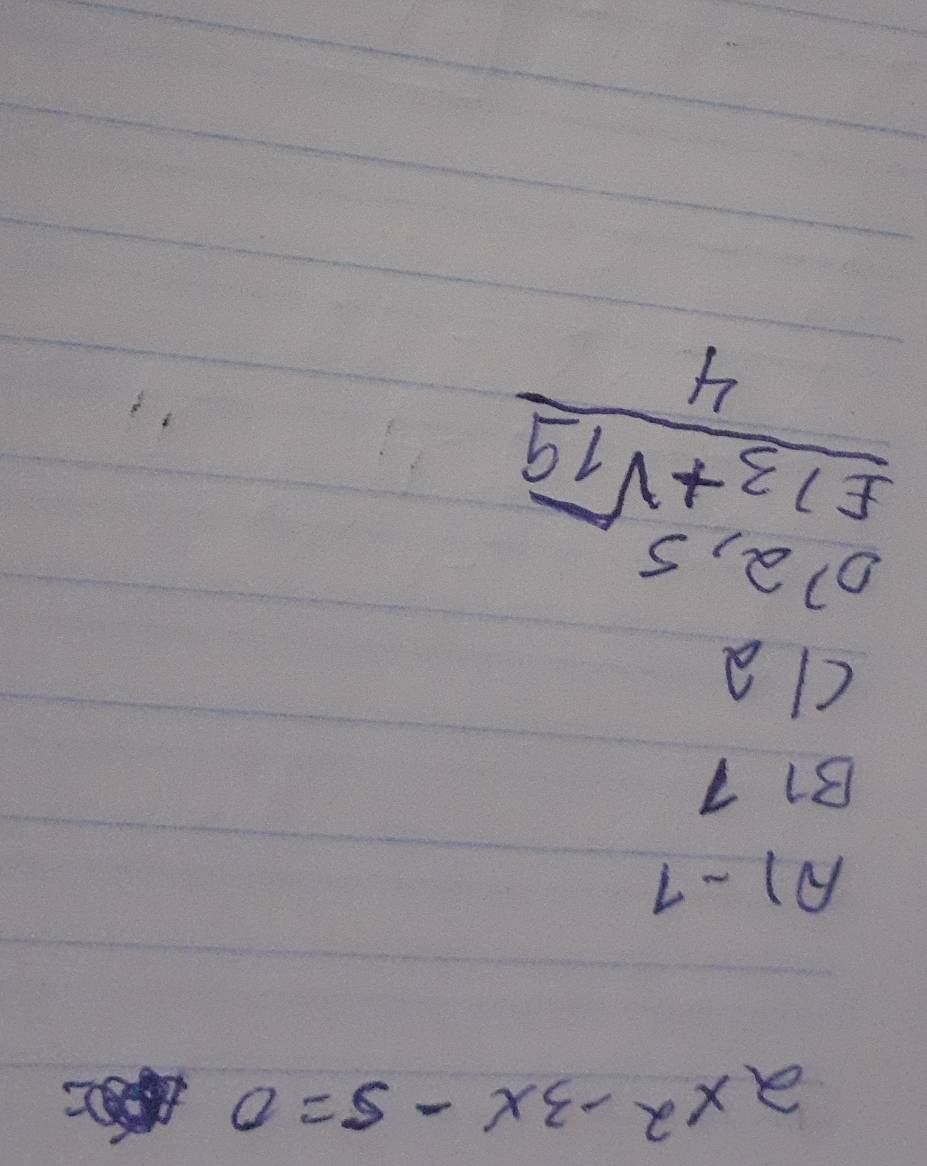 2x2 -3x - 5 = 0
A) -1
B) 1
C) 2
D) 2,5
E) 3 + √19
4